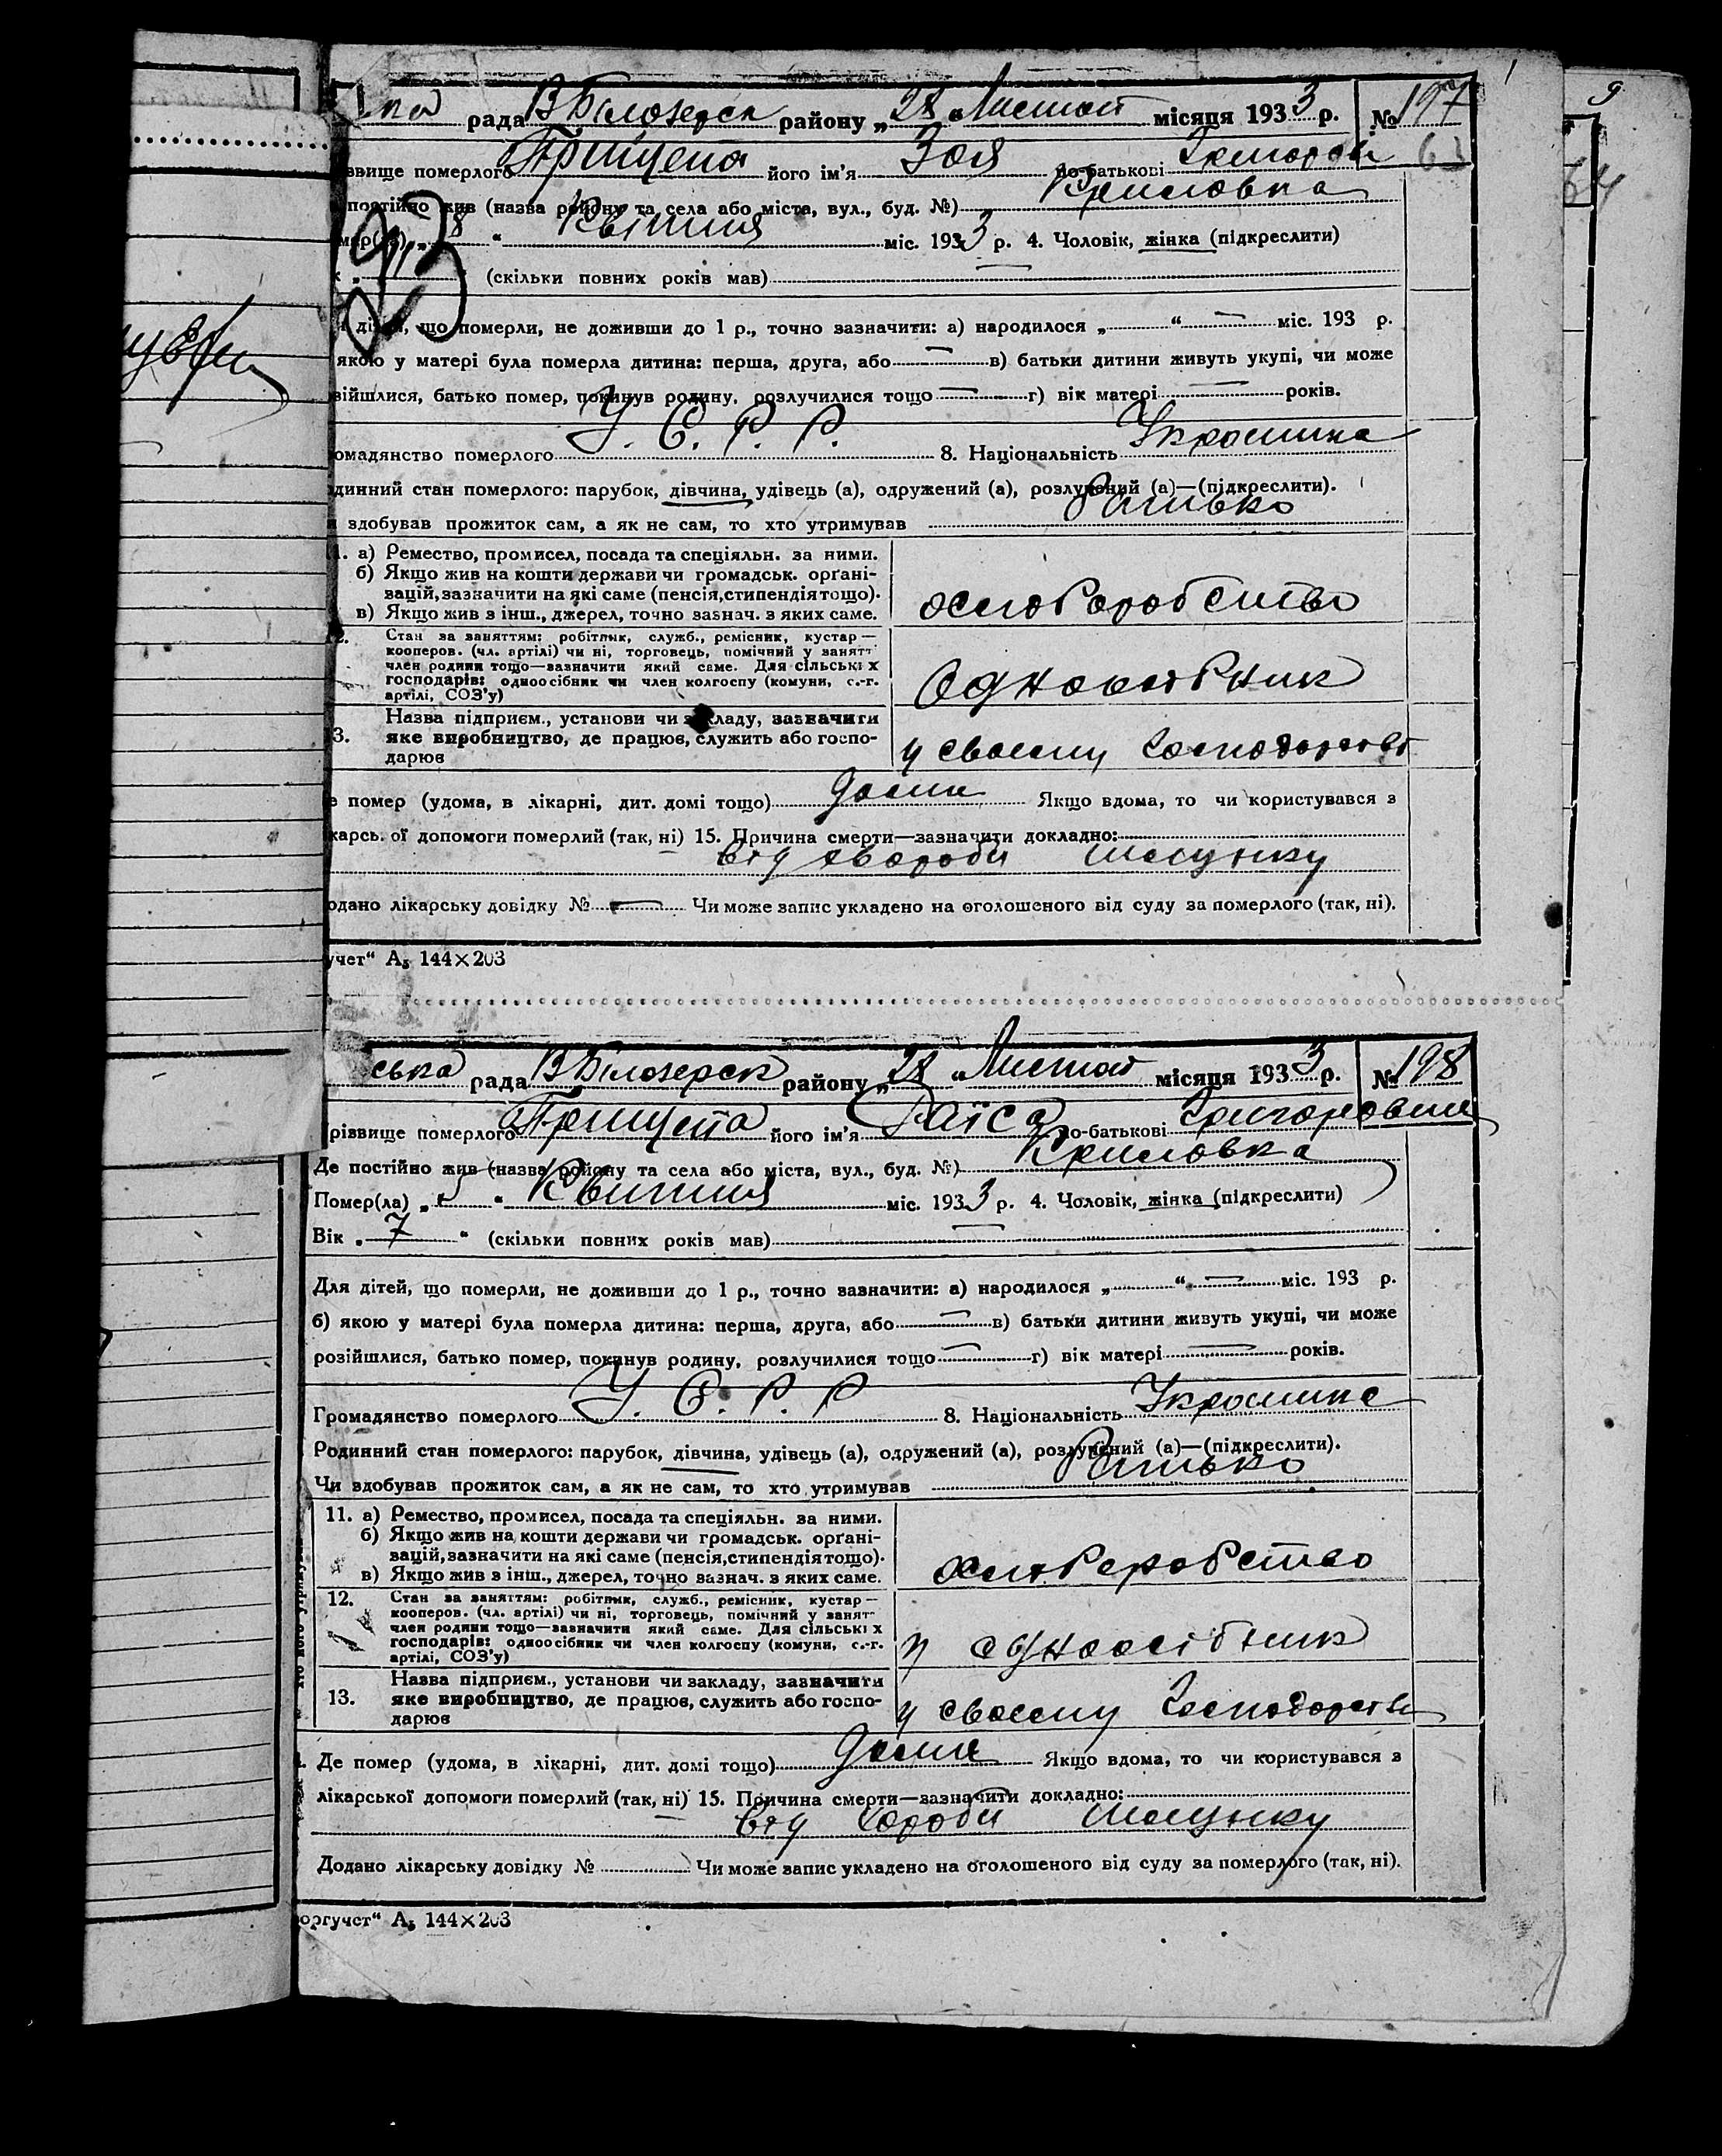 рада В Білозерск району „ 28 " Листоп місяця 1933 р. № 197
звище померлого Прищепа його ім'я Зоя по-батькові Григоров 63
постійно жив (назва району та села або міста, вул., буд. №) Кримовка
мер(ла) „ 8 " Квітня міс. 1933 р. 4. Чоловік, жінка (підкреслити)
(скільки повних років мав) —
дітей, що померли, не доживши до 1 р., точно зазначити: а) народилося „ " — міс. 193 р.
якою у матері була померла дитина: перша, друга, або — в) батьки дитини живуть укупі, чи може
війшлися, батько помер, покинув родину, розлучилися тощо — г) вік матері — років.
омадянство померлого У. С. Р. Р. 8. Національність Украинка
динний стан померлого: парубок, дівчина, удівець (а), одружений (а), розлучений (а)—(підкреслити).
здобував прожиток сам, а як не сам, то хто утримував Батько
1. а) Ремество, промисел, посада та спеціяльн. за ними.
б) Якщо жив на кошти держави чи громадськ. орґані-
зацій, зазначити на які саме (пенсія, стипендія тощо).
в) Якщо жив з інш., джерел, точно зазнач. з яких саме.
хліборобство
2. Стан за заняттям: робітник, служб., ремісник, кустар—
кооперов. (чл. артілі) чи ні, торговець, помічний у занятт
член родини тощо—зазначити який саме. Для сільських
господарів: одноосібник чи член колгоспу (комуни, с.-г.
артілі, СОЗ'у)
Одноосібник
3. Назва підприєм., установи чи закладу, зазначити
яке виробництво, де працює, служить або госпо-
дарює
у своєму господарстві
помер (удома, в лікарні, дит. домі тощо) дома Якщо вдома, то чи користувався з
карсь. ої допомоги померлий (так, ні) 15. Причина смерти—зазначити докладно:
від хвороби шлунку
одано лікарську довідку № — Чи може запис укладено на оголошеного від суду за померлого (так, ні).
учет" А₅ 144×203
ська рада В Білозерск району „ 28 " Листоп місяця 1933 р. № 198
різвище померлого Прищепа його ім'я Раїса по-батькові Григоровна
Де постійно жив (назва району та села або міста, вул., буд. №) Кримовка
Помер(ла) „ 5 " Квитня міс. 1933 р. 4. Чоловік, жінка (підкреслити)
Вік „ 7 " (скільки повних років мав) —
Для дітей, що померли, не доживши до 1 р., точно зазначити: а) народилося „ " — міс. 193 р.
б) якою у матері була померла дитина: перша, друга, або — в) батьки дитини живуть укупі, чи може
розійшлися, батько помер, покинув родину, розлучилися тощо — г) вік матері — років.
Громадянство померлого У. С. Р. Р 8. Національність Украинка
Родинний стан померлого: парубок, дівчина, удівець (а), одружений (а), розлучений (а)—(підкреслити).
Чи здобував прожиток сам, а як не сам, то хто утримував Батько
11. а) Ремество, промисел, посада та спеціяльн. за ними.
б) Якщо жив на кошти держави чи громадськ. орґані-
зацій, зазначити на які саме (пенсія, стипендія тощо).
в) Якщо жив з інш., джерел, точно зазнач. з яких саме.
хліборобство
12. Стан за заняттям: робітник, служб., ремісник, кустар—
кооперов. (чл. артілі) чи ні, торговець, помічний у занят
член родини тощо—зазначити який саме. Для сільських
господарів: одноосібник чи член колгоспу (комуни, с.-г.
артілі, СОЗ'у)
одноосібник
13. Назва підприєм., установи чи закладу, зазначити
яке виробництво, де працює, служить або госпо-
дарює
у своєму господарстві
Де помер (удома, в лікарні, дит. домі тощо) дома Якщо вдома, то чи користувався з
лікарської допомоги померлий (так, ні) 15. Причина смерти—зазначити докладно:
від хороби шлунку
Додано лікарську довідку № Чи може запис укладено на оголошеного від суду за померлого (так, ні).
оргучет" А₅ 144×203